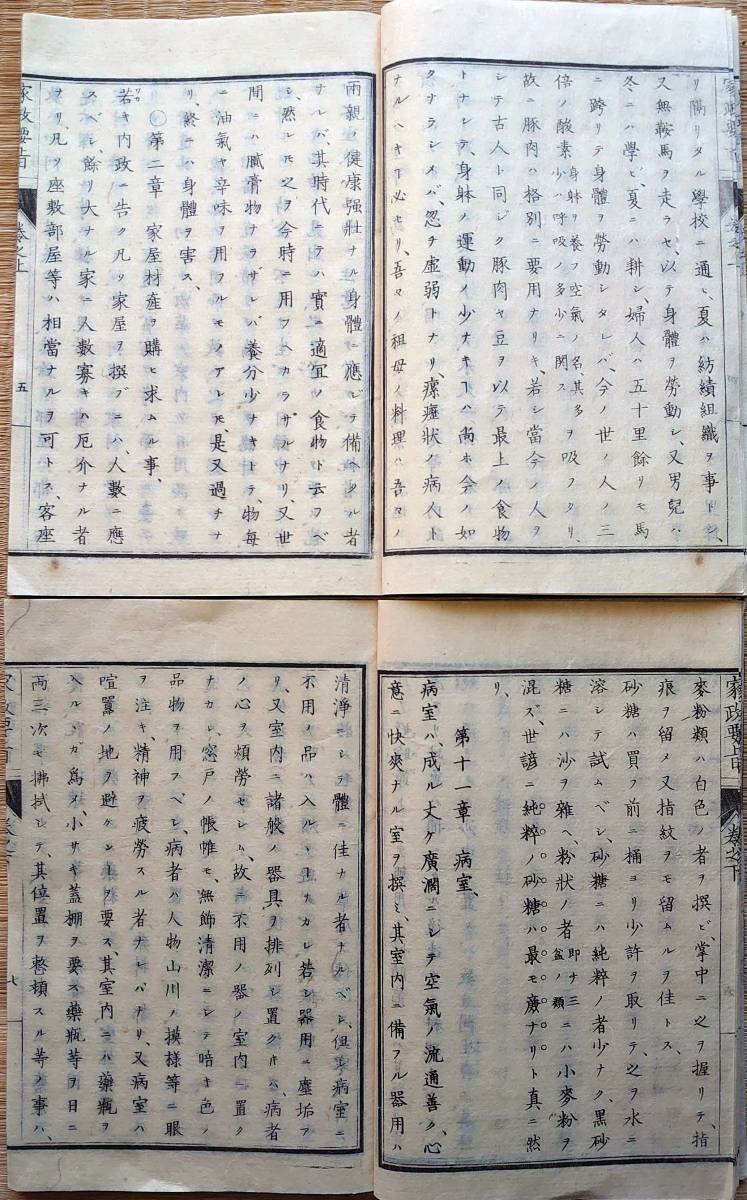 家政要旨
リ隔リタル學校ニ通ヒ、夏ハ紡績組織ヲ事トシ、
又無鞍馬ヲ走ラセ、以テ身體ヲ勞動シ、又男兒ハ
冬ニハ學ヒ、夏ニハ耕シ、婦人ハ五十里餘リモ馬
ニ跨リテ身體ヲ勞動シタレバ、今ノ世ノ人ノ三
倍ノ酸素身躰ヲ養フ空氣ノ名其多少ハ呼吸ノ多少ニ關スヲ吸フタリ、
故ニ豚肉ハ格別ニ要用ナリキ、若シ當今ノ人ヲ
シテ古人ト同ジク豚肉ヤ豆ヲ以テ最上ノ食物
トナシテ、身躰ノ運動ノ少ナキヿハ尚ホ今ノ如
クナラシメバ、忽チ虚弱トナリ、瘰癧状ノ病人ト
ナルヘキヿ必セリ、吾々ノ祖母ノ料理ハ吾々ノ
兩親ノ健康强壯ナル身體ニ應ジテ備ヘタル者
ナレバ、其時代ニテハ實ニ適宜ノ食物ト云フベ
シ、然レモ之ヲ今時ニ用フベカラザルナリ、又世
間ニハ臓膏物ナラザレバ養分少ナキトテ、物毎
ニ油氣ヤ辛味ヲ用フルモノアレモ、是又過チナ
リ、終ニハ身體ヲ害ス、
〇第二章 家屋材産ヲ購ヒ求ムル事、
若キ内政ニ告ク凡ソ家屋ヲ撰ブニハ、人數ニ應
スベシ、餘リ大ナル家ニ人數寡キハ厄介ナル者
ヲリ凡ソ座敷部屋等ハ相當ナルヲ可トス、客座
家政要旨 卷之上 五
家政要旨 卷之下
麥粉類ハ白色ノ者ヲ撰ビ、掌中ニ之ヲ握リテ、指
痕ヲ留メ又指紋ヲモ留ムルヲ佳トス、
砂糖ハ買フ前ニ桶ヨリ少許ヲ取リテ、之ヲ水ニ
溶シテ試ムベシ、砂糖ニハ純粹ノ者少ナク、黒砂
糖ニハ沙ヲ雜ヘ、粉狀ノ者即ナ三盆ノ類ニハ小麥粉ヲ
混ズ、世諺ニ純粹ノ砂糖ハ最モ廣ナリト真ニ然
リ、
第十一章 病室、
病室ハ、成ル丈ケ廣濶ニシテ空氣ノ流通善ク、心
意ニ快爽ナル室ヲ撰ミ、其室内ニ備フル器用ハ
清淨ニシテ體ニ佳ナル者ナルベシ、但シ病室ニ
不用ノ品ハ入ルヽヿナカレ若シ器用ニ塵垢ア
リ、又室内ニ諸般ノ器具ヲ排列シ置クキハ、病者
ノ心ヲ煩勞セシム、故ニ不用ノ器ノ室内ニ置ク
ナカレ、窓戸ノ帳帷モ、無飾清潔ニシテ暗キ色ノ
品物ヲ用フヘシ、病者ハ人物山川ノ摸様等ニ眼
ヲ注キ、精神ヲ疲勞スル者ナレバナリ、又病室ハ
喧囂ノ地ヲ避ケンヿヲ要ス、其室内ニハ藥瓶ヲ
入ルガ爲メ、小サキ蓋棚ヲ要ス藥瓶等ヲ日ニ
兩三次モ拂拭シテ、其位置ヲ整頓スル等ノ事ハ、
七